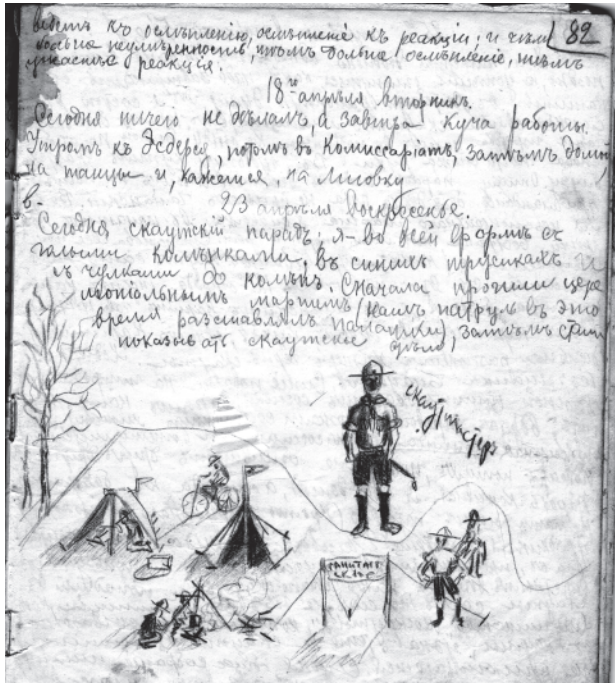 82
ведетъ къ ослѣпленію, ослѣпленіе къ реакціи; и чѣмъ
больше неумѣренность, тѣмъ больше ослѣпленіе, тѣмъ
ужаснѣе реакція.
18го апрѣля вторникъ.
Сегодня ничего не дѣлалъ, а завтра куча работы.
Утромъ къ Эсдерсъ, потомъ въ Комиссаріатъ, затѣмъ домой
на танцы и, кажется, на
в.
23 апрѣля воскресенье.
Сегодня скаутскій парадъ; я - во всей формѣ съ
голыми колѣнками, въ синихъ трусикахъ и
съ чулками до колѣнъ. Сначала прошли цере
моніальнымъ маршемъ (нашъ патруль въ это
время разставлялъ палатки), затѣмъ стали
показывать скаутское дѣло,
скаутмастеръ